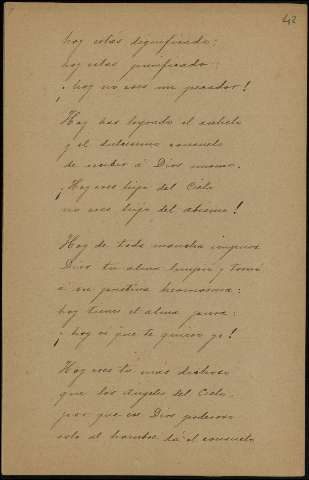 42
hoy estás dignificado:
hoy estás purificado:
¡hoy no eres un pecador!
Hoy has logrado el anhelo
y el dulcísimo consuelo
de recibir á Dios mismo.
¡Hoy eres hijo del Cielo
no eres hijo del abismo!
Hoy de toda mancha impura
Dios tu alma limpió y tornó
á su prístina hermosura:
hoy tienes el alma pura:
¡hoy es que te quiero yo!
Hoy eres tú más dichoso
que los ángeles del Cielo,
por que ese Dios poderoso
solo al hombre dá el consuelo